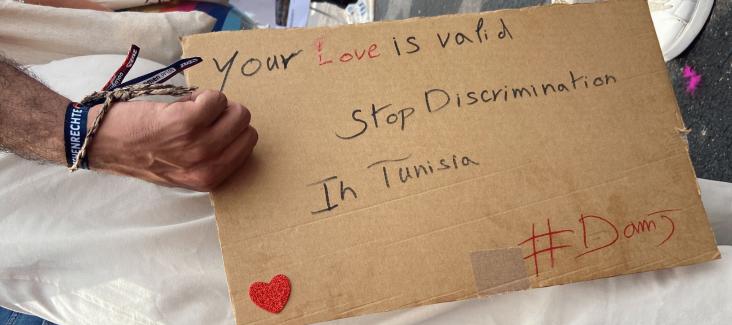 Your Love is valid
Stop Discrimination
In Tunisia
#Damj